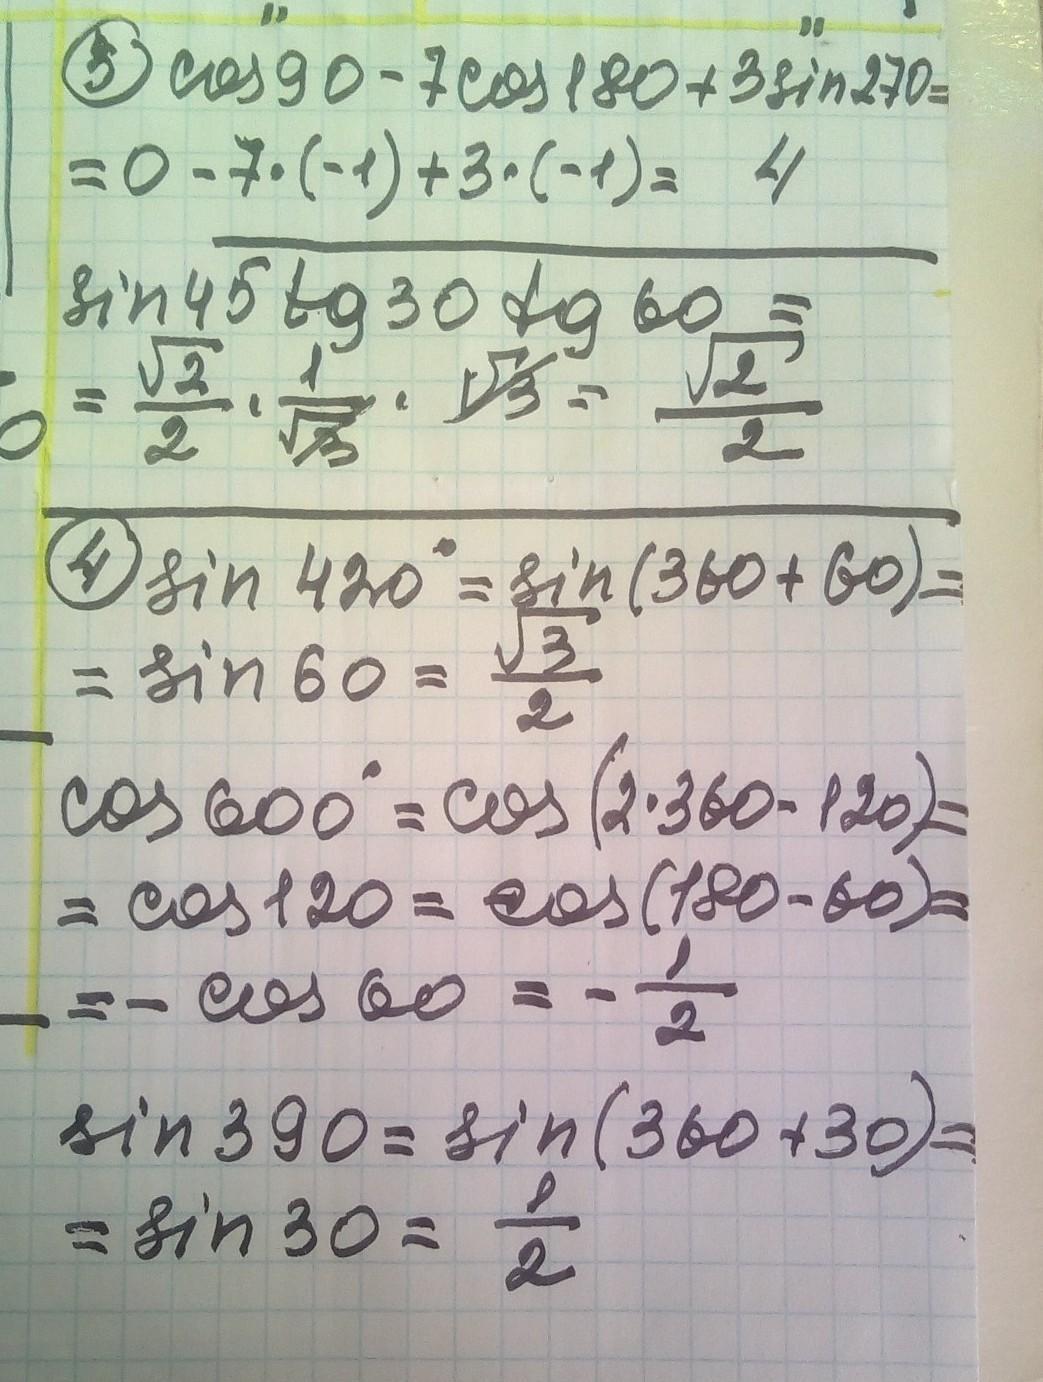 ③ cos 90 - 7cos 180 + 3 sin 270 =
= 0 - 7·(-1) + 3·(-1) = 4
sin 45 tg 30 tg 60 =
= √2/2 · 1/√3 · √3 = √2/2
④ sin 420° = sin(360 + 60) =
= sin 60 = √3/2
cos 600° = cos(2·360 - 120) =
= cos 120 = cos(180 - 60) =
= - cos 60 = - 1/2
sin 390 = sin(360 + 30) =
= sin 30 = 1/2